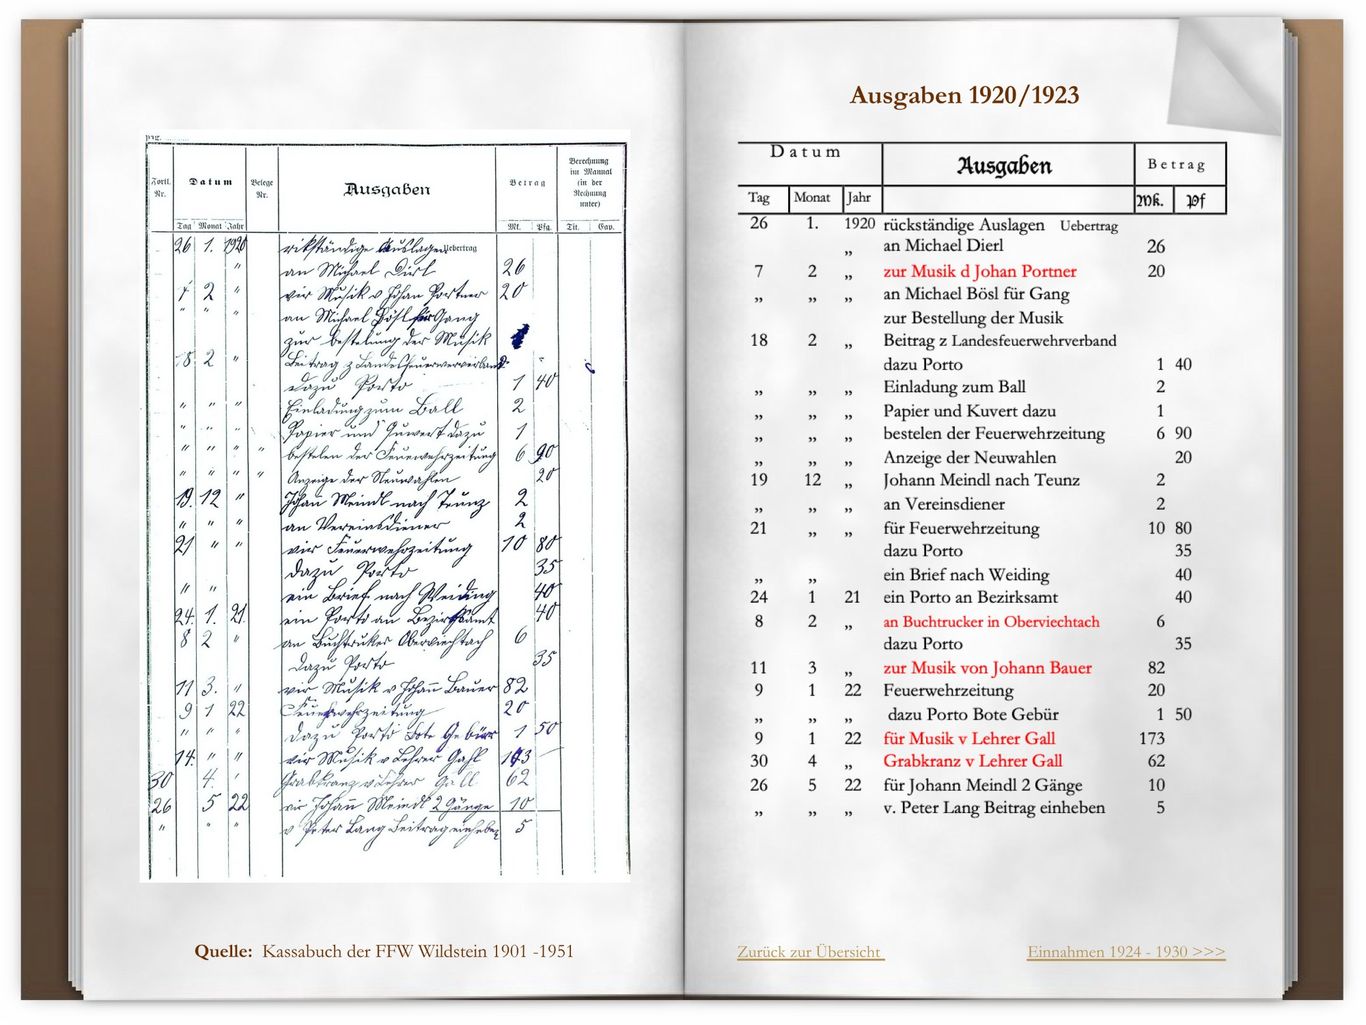 pag.
Fortl. Nr. Datum Belege Nr. Ausgaben Betrag Berechnung im Manual (in der Rechnung unter)
Tag Monat Jahr Mk. Pfg. Tit. Cap.
26 1. 1920 rikständige Auslagen Uebertrag
" an Michael Dirl 26
7 2 " vir Musik v Johan Portner 20
" " " an Michael Bösl für Gang
zur bestelung der Musik
18 2 " Beitrag z Landesfeuerwerverband
dazu Porto 1 40
" " " Einladung zum Ball 2
" " " Papier und Guwert dazu 1
" " " " bestelen der Feuerwehrzeitung 6 90
" " " " Anzeige der Neuwahlen 20
19. 12 " Johan Meindl nach Teunz 2
" " " an Vereinsdiener 2
21 " " vir Feuerwehrzeitung 10 80
dazu Porto 35
" " ein Brief nach Weiding 40
24. 1. 21. ein Porto an Bezirksamt 40
8 2 " an Buchtruker Oberviechtach 6
dazu Porto 35
11 3. " vir Musik v Johann Bauer 82
9 1 22 Feuerwehrzeitung 20
" " " dazu Porto Bote Gebürr 1 50
14. " " vir Musik v Lehrer Gahl 173
30 4. ' Grabkranz v Lehrer Gall 62
26 5 22 vir Johann Meindl 2 Gänge 10
" " " v Peter Lang Beitrag einheben 5
Quelle: Kassabuch der FFW Wildstein 1901 -1951
Ausgaben 1920/1923
Datum Ausgaben Betrag
Tag Monat Jahr Mk. Pf
26 1. 1920 rückständige Auslagen Uebertrag
„ an Michael Dierl 26
7 2 „ zur Musik d Johan Portner 20
„ „ „ an Michael Bösl für Gang
zur Bestellung der Musik
18 2 „ Beitrag z Landesfeuerwehrverband
dazu Porto 1 40
„ „ „ Einladung zum Ball 2
„ „ „ Papier und Kuvert dazu 1
„ „ „ bestelen der Feuerwehrzeitung 6 90
„ „ „ Anzeige der Neuwahlen 20
19 12 „ Johann Meindl nach Teunz 2
„ „ „ an Vereinsdiener 2
21 „ „ für Feuerwehrzeitung 10 80
dazu Porto 35
„ „ ein Brief nach Weiding 40
24 1 21 ein Porto an Bezirksamt 40
8 2 „ an Buchtrucker in Oberviechtach 6
dazu Porto 35
11 3 „ zur Musik von Johann Bauer 82
9 1 22 Feuerwehrzeitung 20
„ „ „ dazu Porto Bote Gebür 1 50
9 1 22 für Musik v Lehrer Gall 173
30 4 „ Grabkranz v Lehrer Gall 62
26 5 22 für Johann Meindl 2 Gänge 10
„ „ „ v. Peter Lang Beitrag einheben 5
Zurück zur Übersicht
Einnahmen 1924 - 1930 >>>